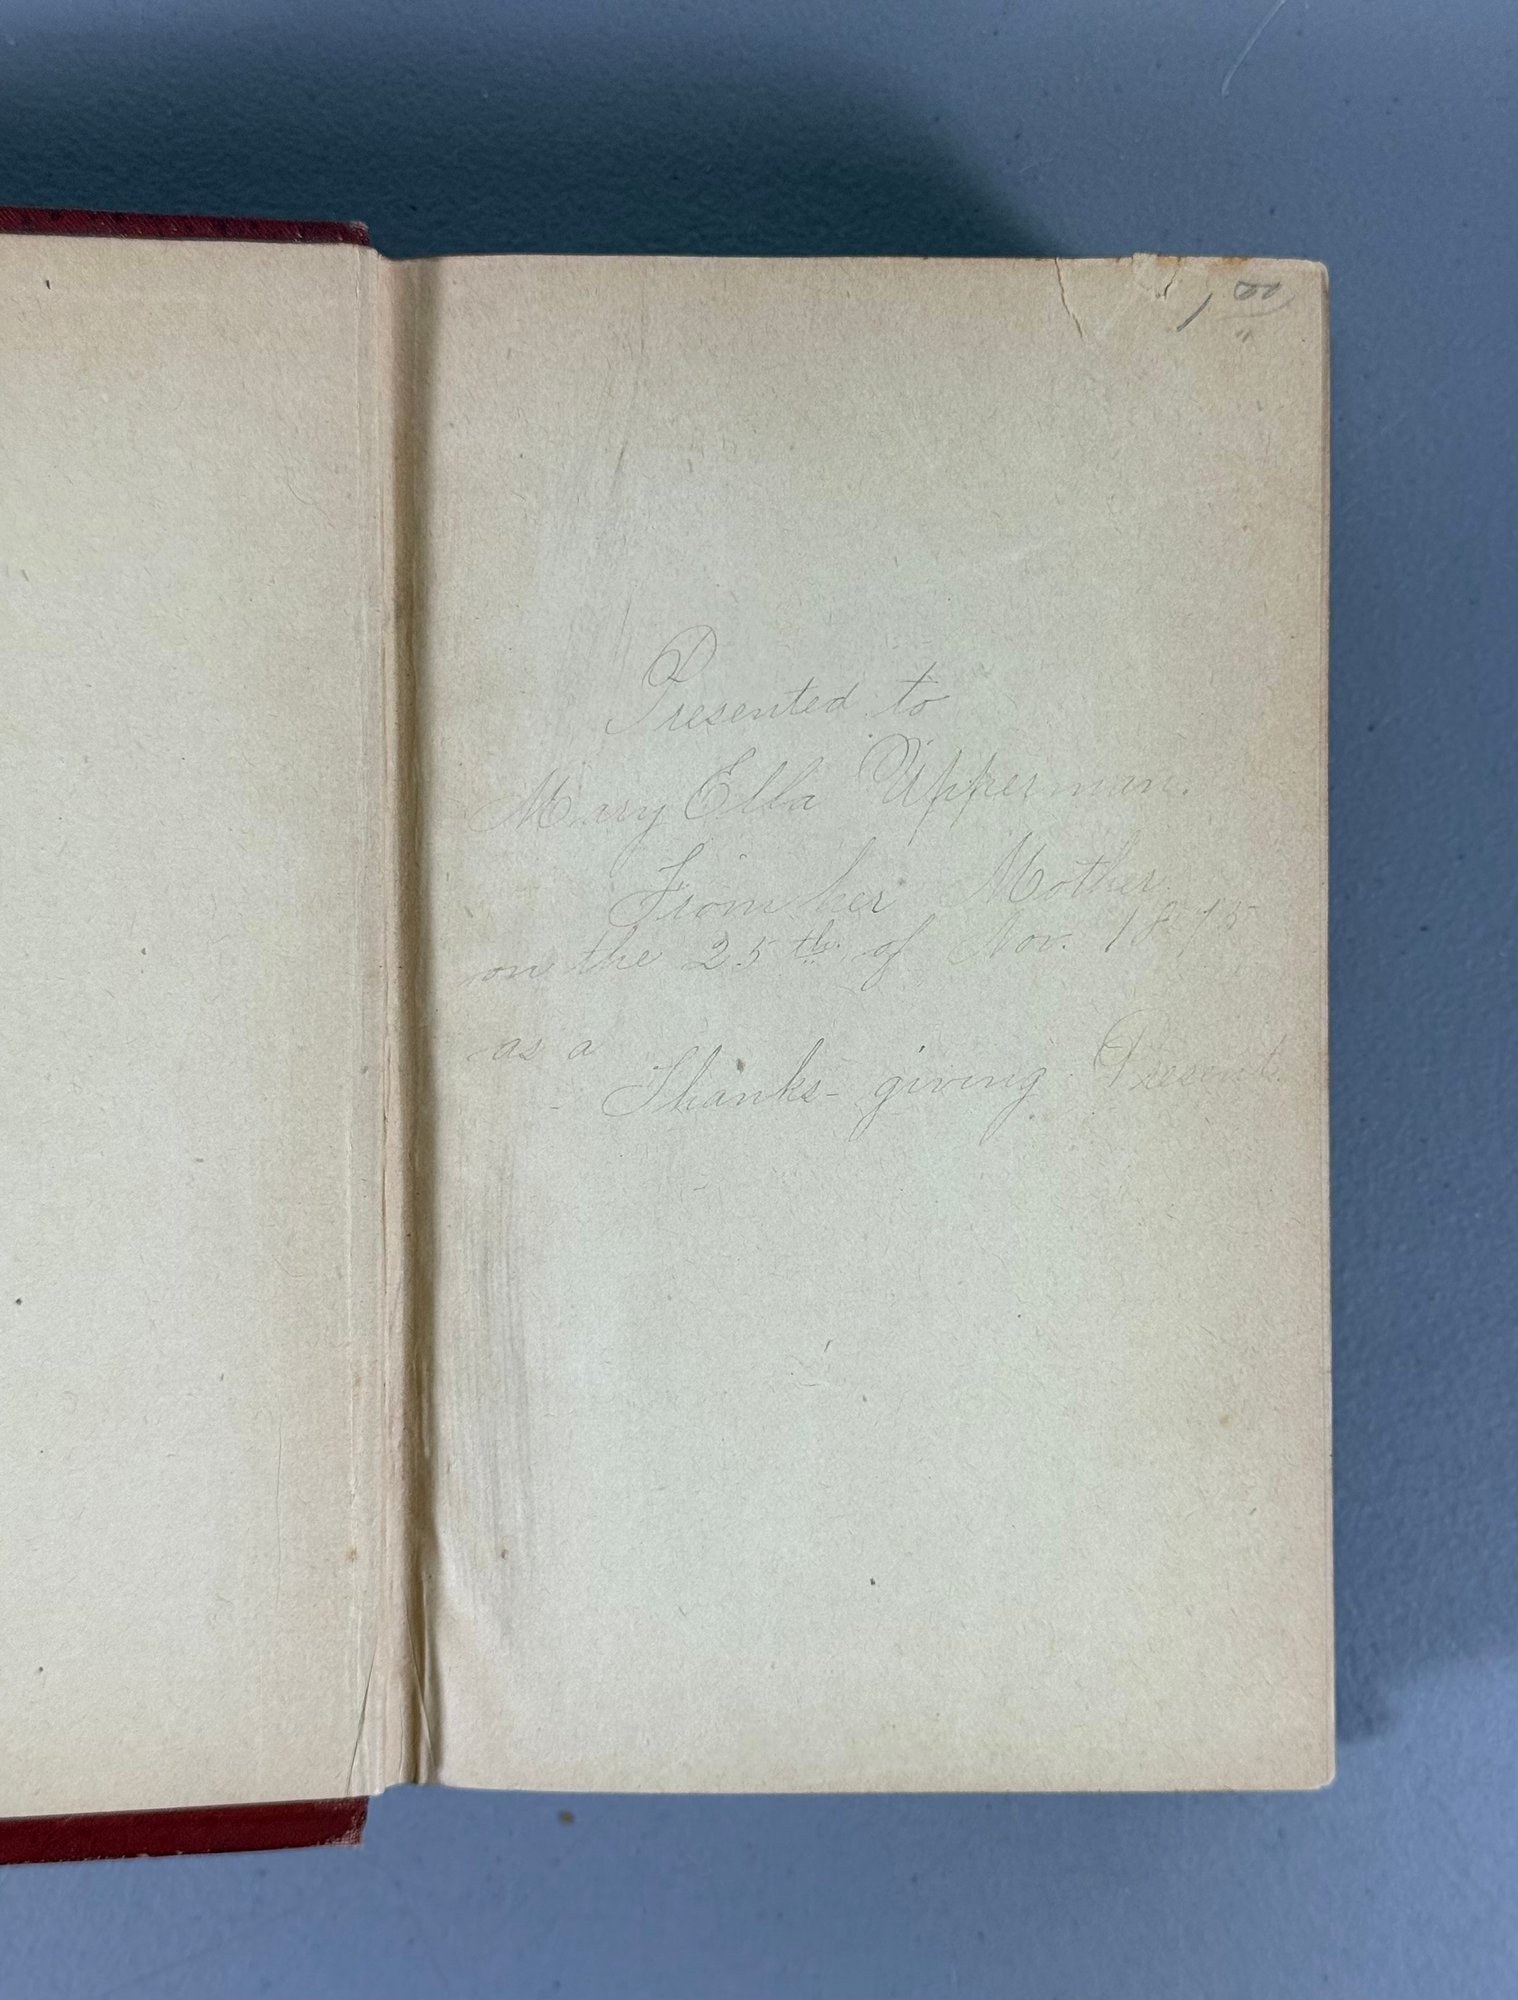 1 00
Presented to
Mary Ella Upperman.
From her Mother.
on the 25th. of Nov. 1875
as a
- Thanks-giving Present.